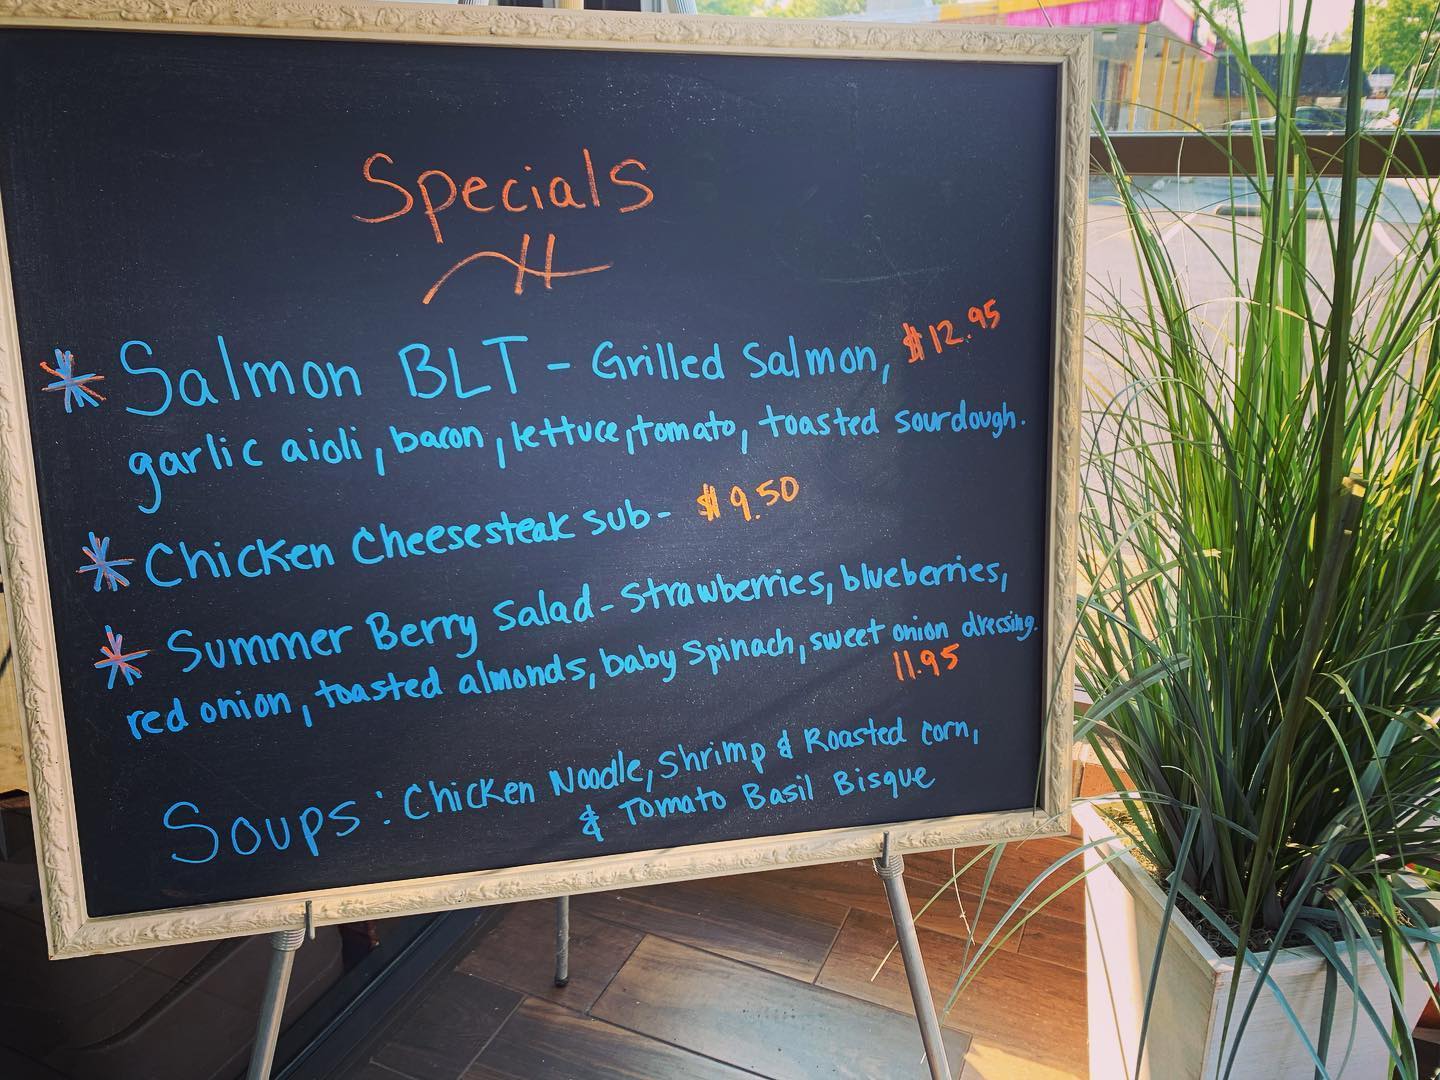 Specials
* Salmon BLT - Grilled Salmon, $12.95
garlic aioli, bacon, lettuce, tomato, toasted sourdough.
* Chicken Cheesesteak sub - $9.50
* Summer Berry Salad - Strawberries, blueberries,
red onion, toasted almonds, baby spinach, sweet onion dressing.
11.95
Soups: Chicken Noodle, Shrimp & Roasted corn,
& Tomato Basil Bisque